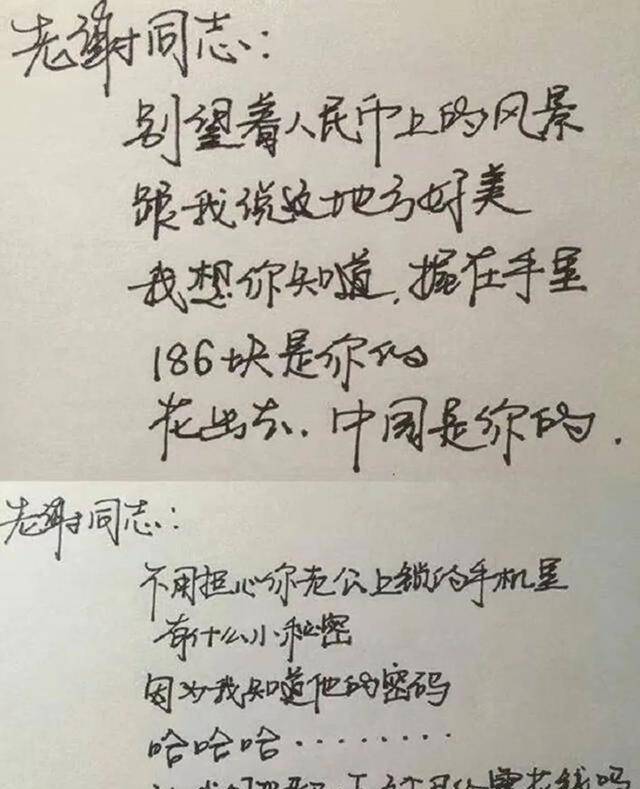 老谢同志：
别望着人民币上的风景
跟我说这地方好美
我想你知道，握在手里
186块是你的
花出去，中国是你的．
老谢同志：
不用担心你老公上锁的手机里
有什么小秘密
因为我知道他的密码
哈哈哈………